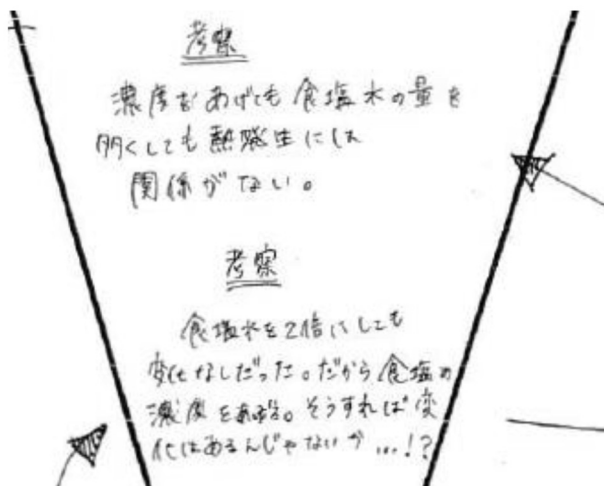 考察
濃度をあげても食塩水の量を
多くしても熱発生には
関係がない。
考察
食塩水を2倍にしても
変化なしだった。だから食塩の
濃度をあげる。そうすれば変
化はあるんじゃないか…!?